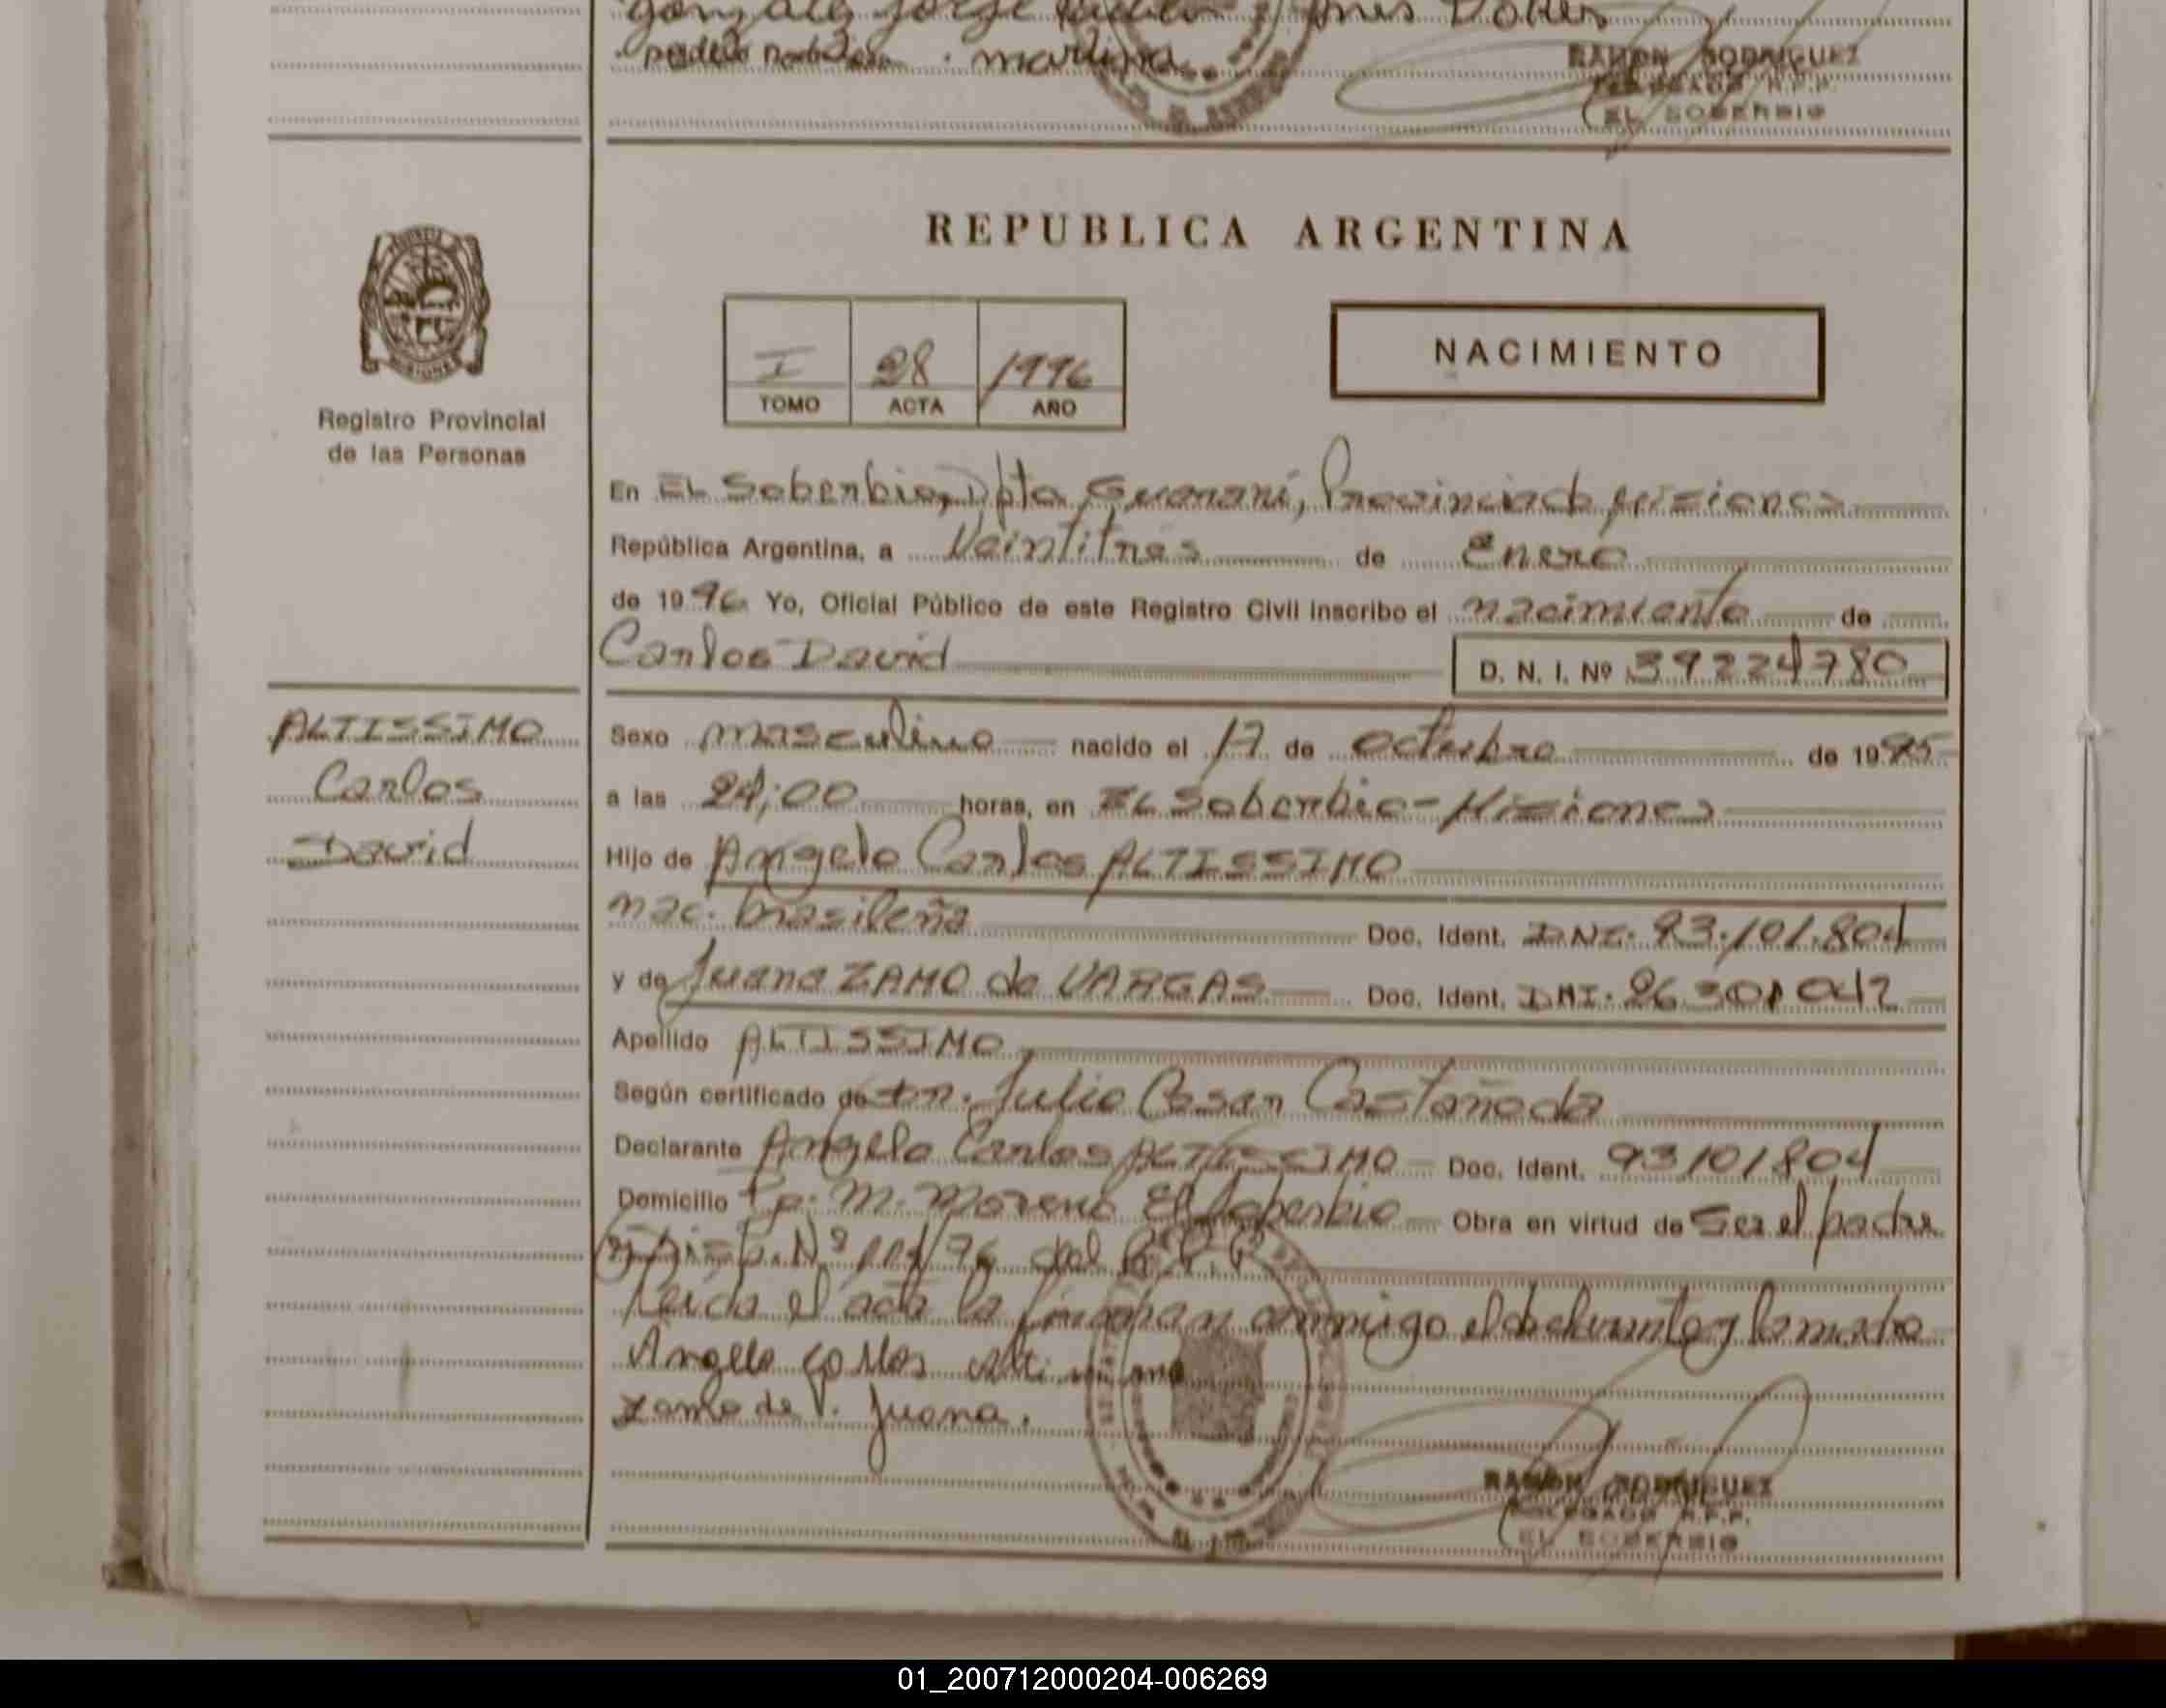 gonzalez Jorge
martina
RAMON RODRIGUEZ
DELEGADO R.P.P.
EL SOBERBIO
REPUBLICA ARGENTINA
MISIONES
Registro Provincial
de las Personas
I 28 1996
TOMO ACTA AÑO
NACIMIENTO
En EL Soberbio, Dpto Guaraní, Provincia de Misiones
República Argentina, a Veintitres de Enero
de 1996 Yo, Oficial Público de este Registro Civil inscribo el nacimiento de
Carlos David D. N. I. Nº 39224780
ALTISSIMO
Carlos
David
Sexo masculino nacido el 17 de octubre de 1995
a las 24;00 horas, en EL Soberbio - Misiones
Hijo de Angelo Carlos ALTISSIMO
nac. brasileña Doc. Ident. DNI. 93.101.804
y de Juana ZAMO de VARGAS Doc. Ident. DNI. 26301042
Apellido ALTISSIMO
Según certificado de Dr. Julio Cesar Castañeda
Declarante Angelo Carlos ALTISSIMO Doc. Ident. 93101804
Domicilio Tp. M. Moreno El Soberbio Obra en virtud de Ser el padre
Disp. Nº del R.P.P.
Leida el acta la firman conmigo el declarante y la madre
Angelo Carlos
Zamo de V. Juana.
RAMON RODRIGUEZ
DELEGADO R.P.P.
EL SOBERBIO
01_200712000204-006269